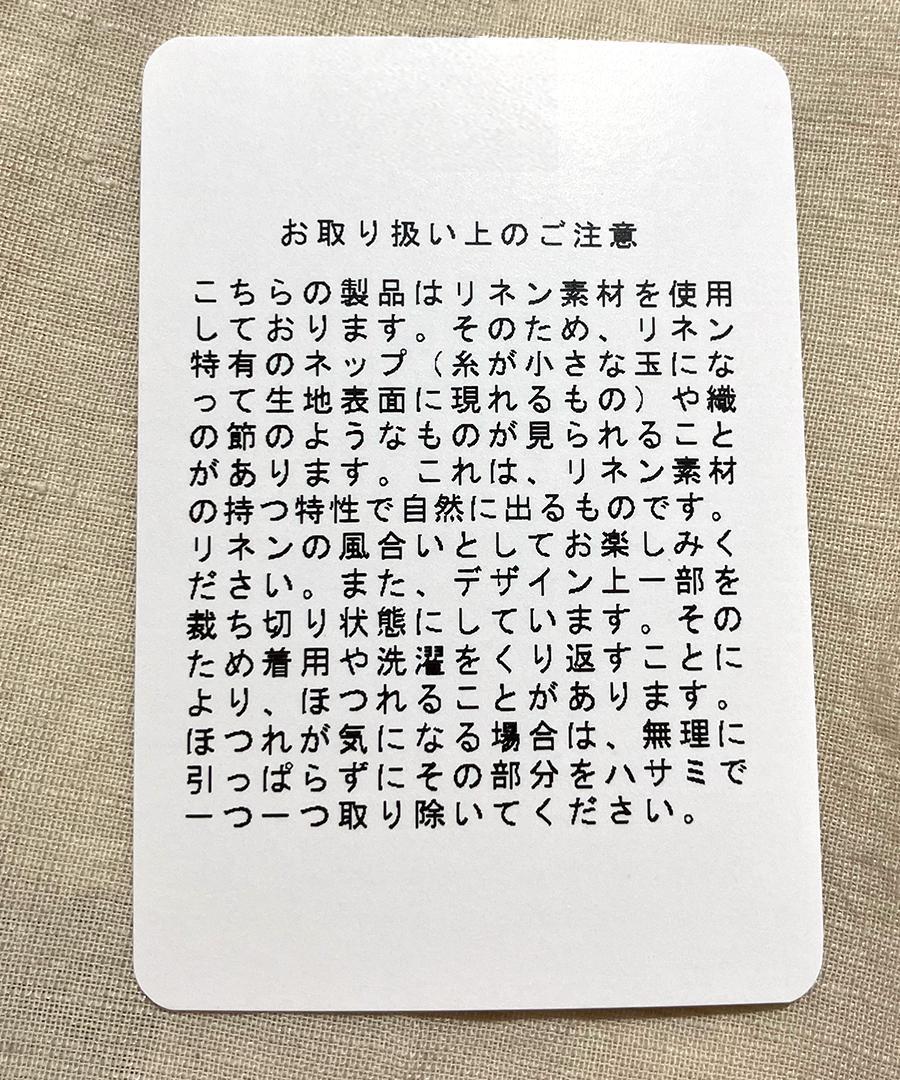 お取り扱い上のご注意
こちらの製品はリネン素材を使用
しております。そのため、リネン
特有のネップ（糸が小さな玉にな
って生地表面に現れるもの）や織
の節のようなものが見られること
があります。これは、リネン素材
の持つ特性で自然に出るものです。
リネンの風合いとしてお楽しみく
ださい。また、デザイン上一部を
裁ち切り状態にしています。その
ため着用や洗濯をくり返すことに
より、ほつれることがあります。
ほつれが気になる場合は、無理に
引っぱらずにその部分をハサミで
一つ一つ取り除いてください。